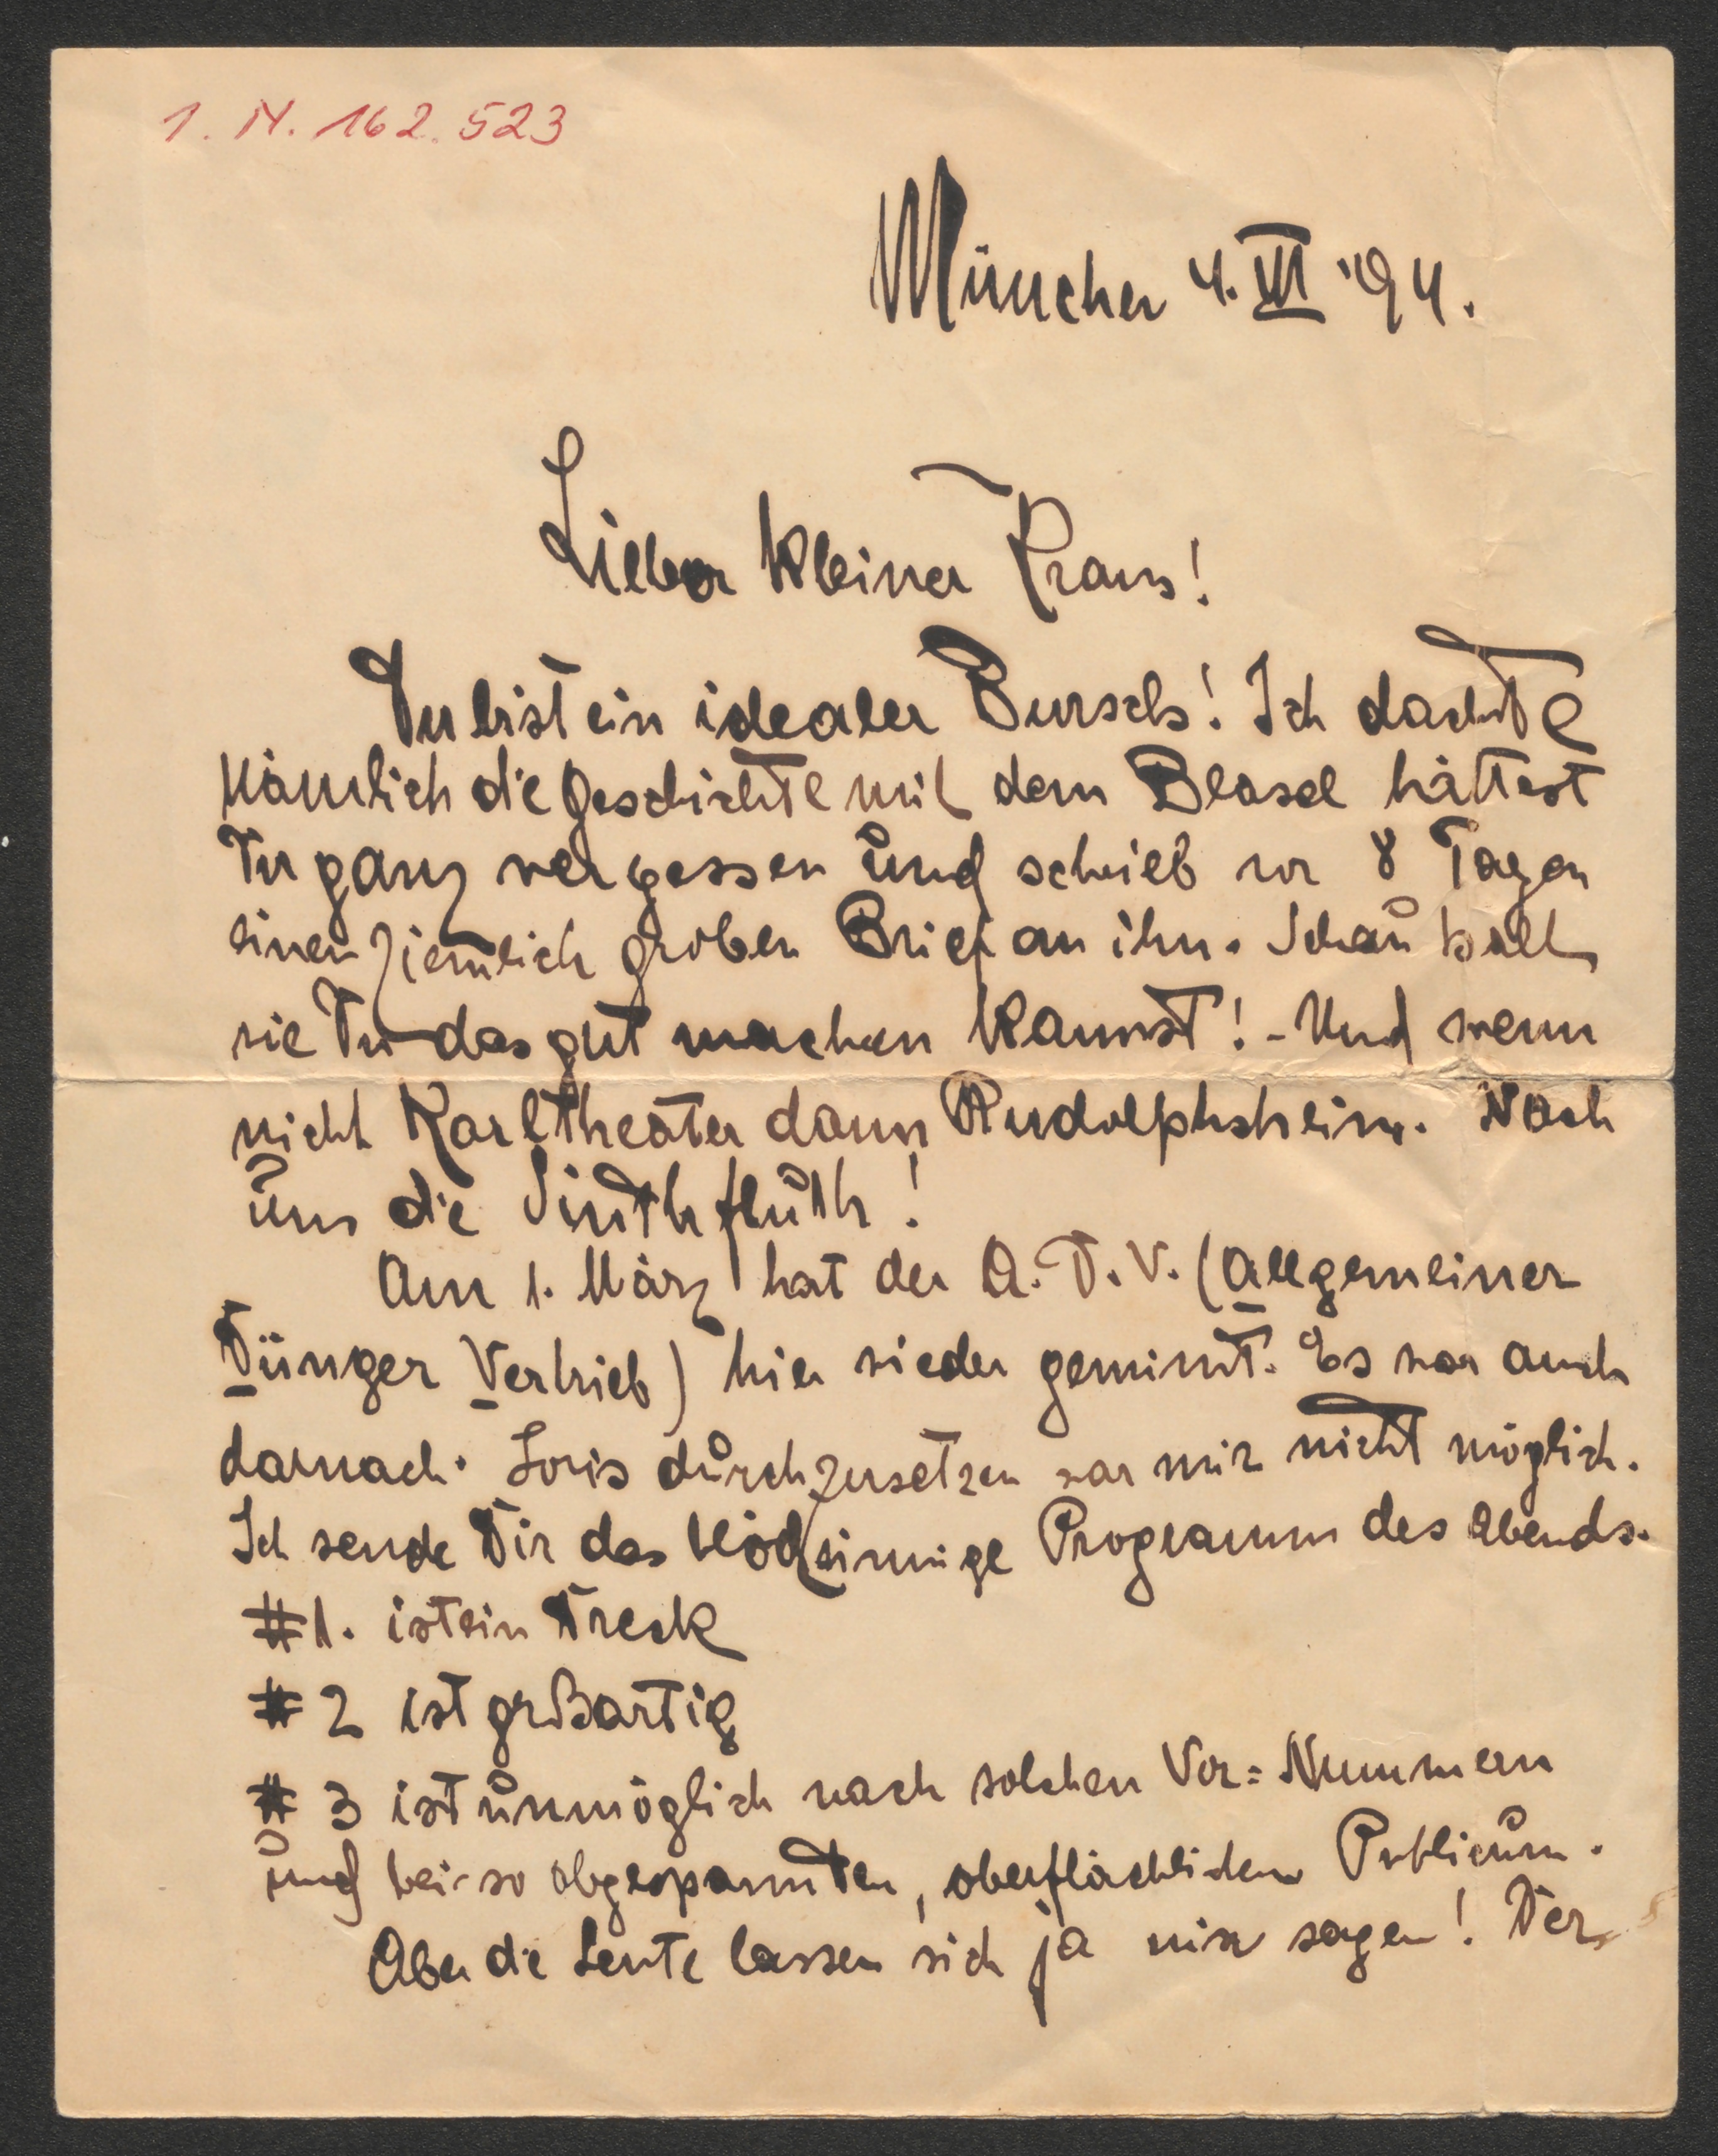 I. N. 162.523
München 4. III '94.
Lieber kleiner Kraus!
Du bist ein idealer Bursch! Ich dachte
nämlich die Geschichte mit dem Blasel hättest
Du ganz vergessen und schrieb vor 8 Tagen
einen ziemlich groben Brief an ihn. Schau halt
wie Du das gut machen kannst! - Und wenn
nicht Karltheater dann Rudolphsheim. Nach
uns die Sinthfluth!
Am 1. März hat der A. D. V. (Allgemeiner
Dünger Vertrieb) hier wieder gemimt. Es war auch
darnach. Loris durchzusetzen war mir nicht möglich.
Ich sende Dir das blödsinnige Programm des Abends.
#1. ist ein Dreck
#2 ist grßartig
#3 ist unmöglich nach solchen Vor=Nummern
und bei so abgespannten, oberflächlichem Publicum.
Aber die Leute lassen sich ja nix sagen! Der